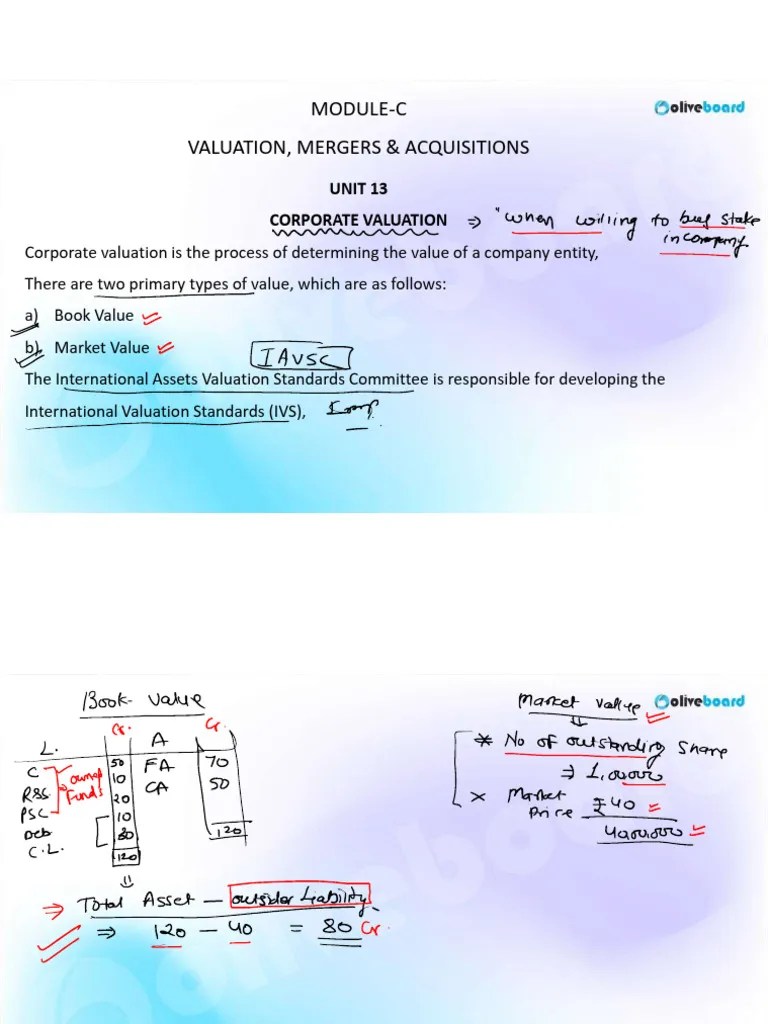 MODULE-C
oliveboard
VALUATION, MERGERS & ACQUISITIONS
UNIT 13
CORPORATE VALUATION ⇒ "when willing to buy stake
in company
Corporate valuation is the process of determining the value of a company entity,
There are two primary types of value, which are as follows:
a) Book Value
b). Market Value
IAVSC
The International Assets Valuation Standards Committee is responsible for developing the
International Valuation Standards (IVS),
Book Value
Market Value
oliveboard
L. Cr. A Cr.
C 50 FA 70
R&S 10 CA 50
owned Funds
PSC 20
Deb 10
C.L. 30
120 120
* No of outstanding share
⇒ 1,00,000
× Market Price ₹40
40,00,000
⇒ Total Asset — outsider Liability
⇒ 120 — 40 = 80 Cr.